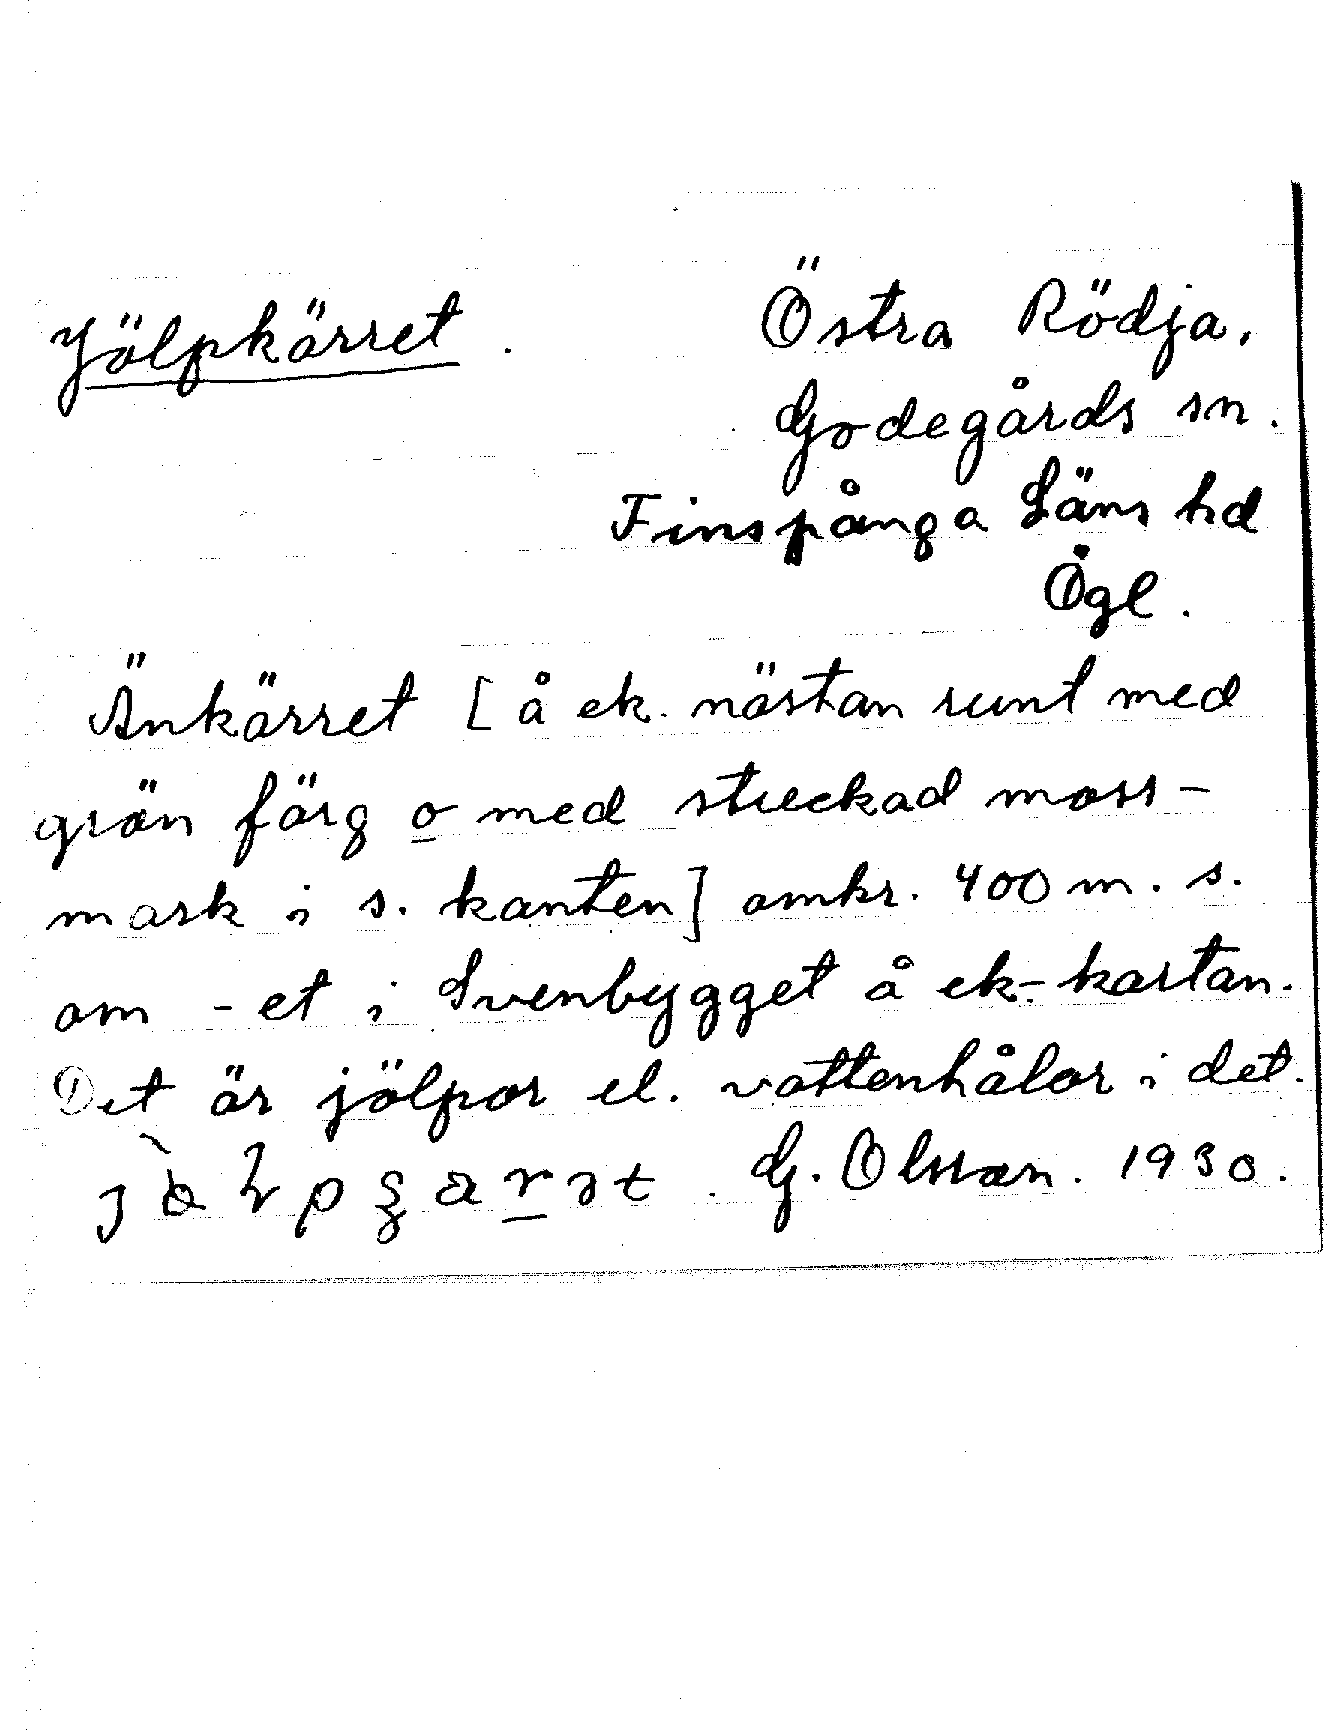 Jölpkärret. Östra Rödja,
Godegårds sn.
Finspånga Läns hd
Ögl.
Änkärret [å ek. nästan runt med
grön färg o med streckad moss-
mark i s. kanten] omkr. 400 m. s.
om -et i Svenbygget å ek-kartan.
Det är jölpor el. vattenhålor i det.
G. Olsson. 1930.